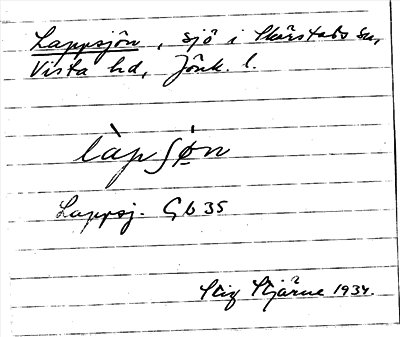 Lappsjön, sjö i Skärstads sn,
Vista hd, Jönk. l.
làpʃøn
Lappsj. Gb 35
Stig Stjärne 1934.